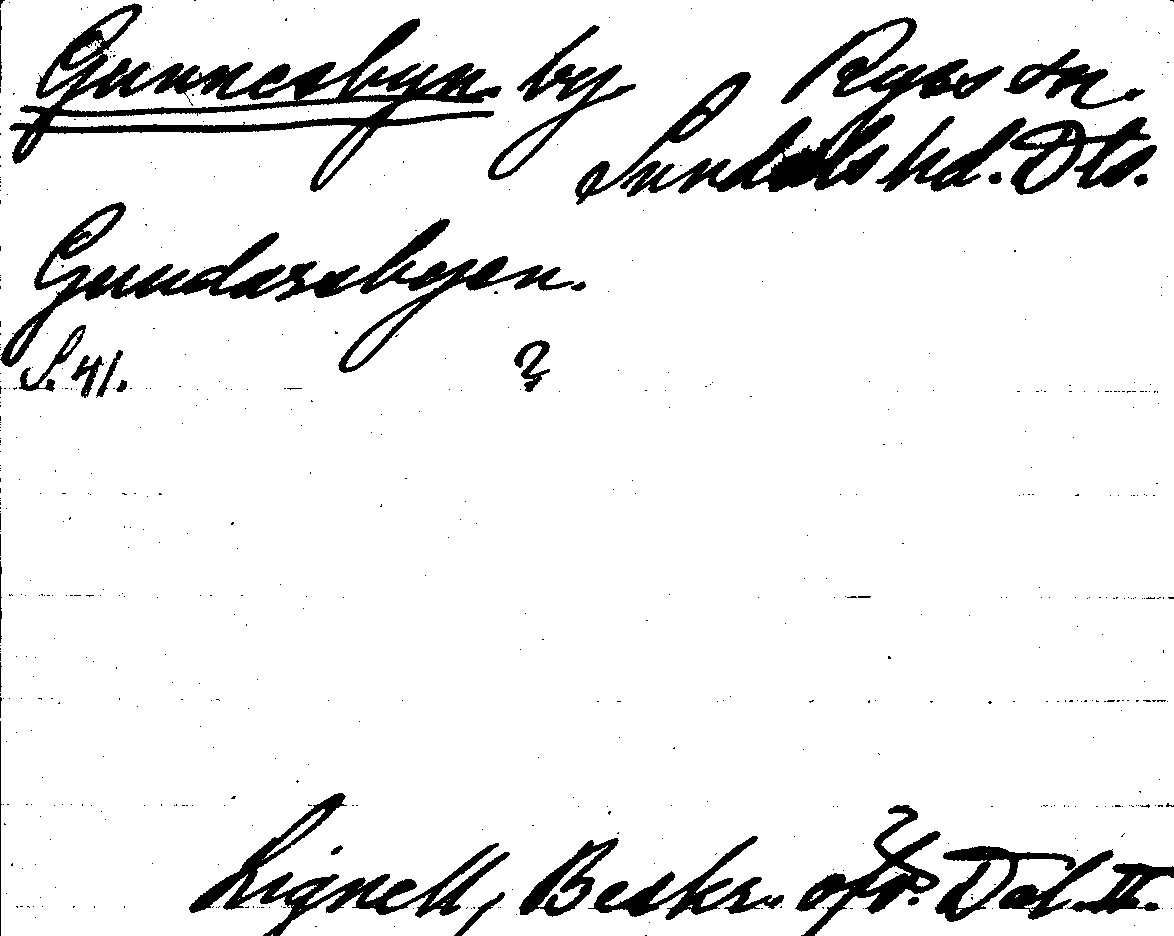 Gunnesbyn. by Ryrs sn.
Sundals hd. Dls.
Gundersebyen.
S. 41. ?
Lignell, Beskr. öfv. Dal. II.